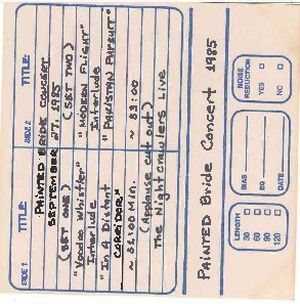 SIDE 1 TITLE: SIDE 2 TITLE:
"PAINTED BRIDE CONCERT
SEPTEMBER 27, 1985
(SET ONE) (SET TWO)
"Voodoo Whistler" "MODERN FLIGHT"
Interlude Interlude
"In A Distant "PAKISTAN PURSUIT"
CORRIDOR"
Min. ~ 83:00
(Applause cut out)
The Nightcrawlers Live
PAINTED Bride Concert 1985
LENGTH
30
60
90
120
BIAS
EQ
DATE
NOISE
REDUCTION
YES
NO